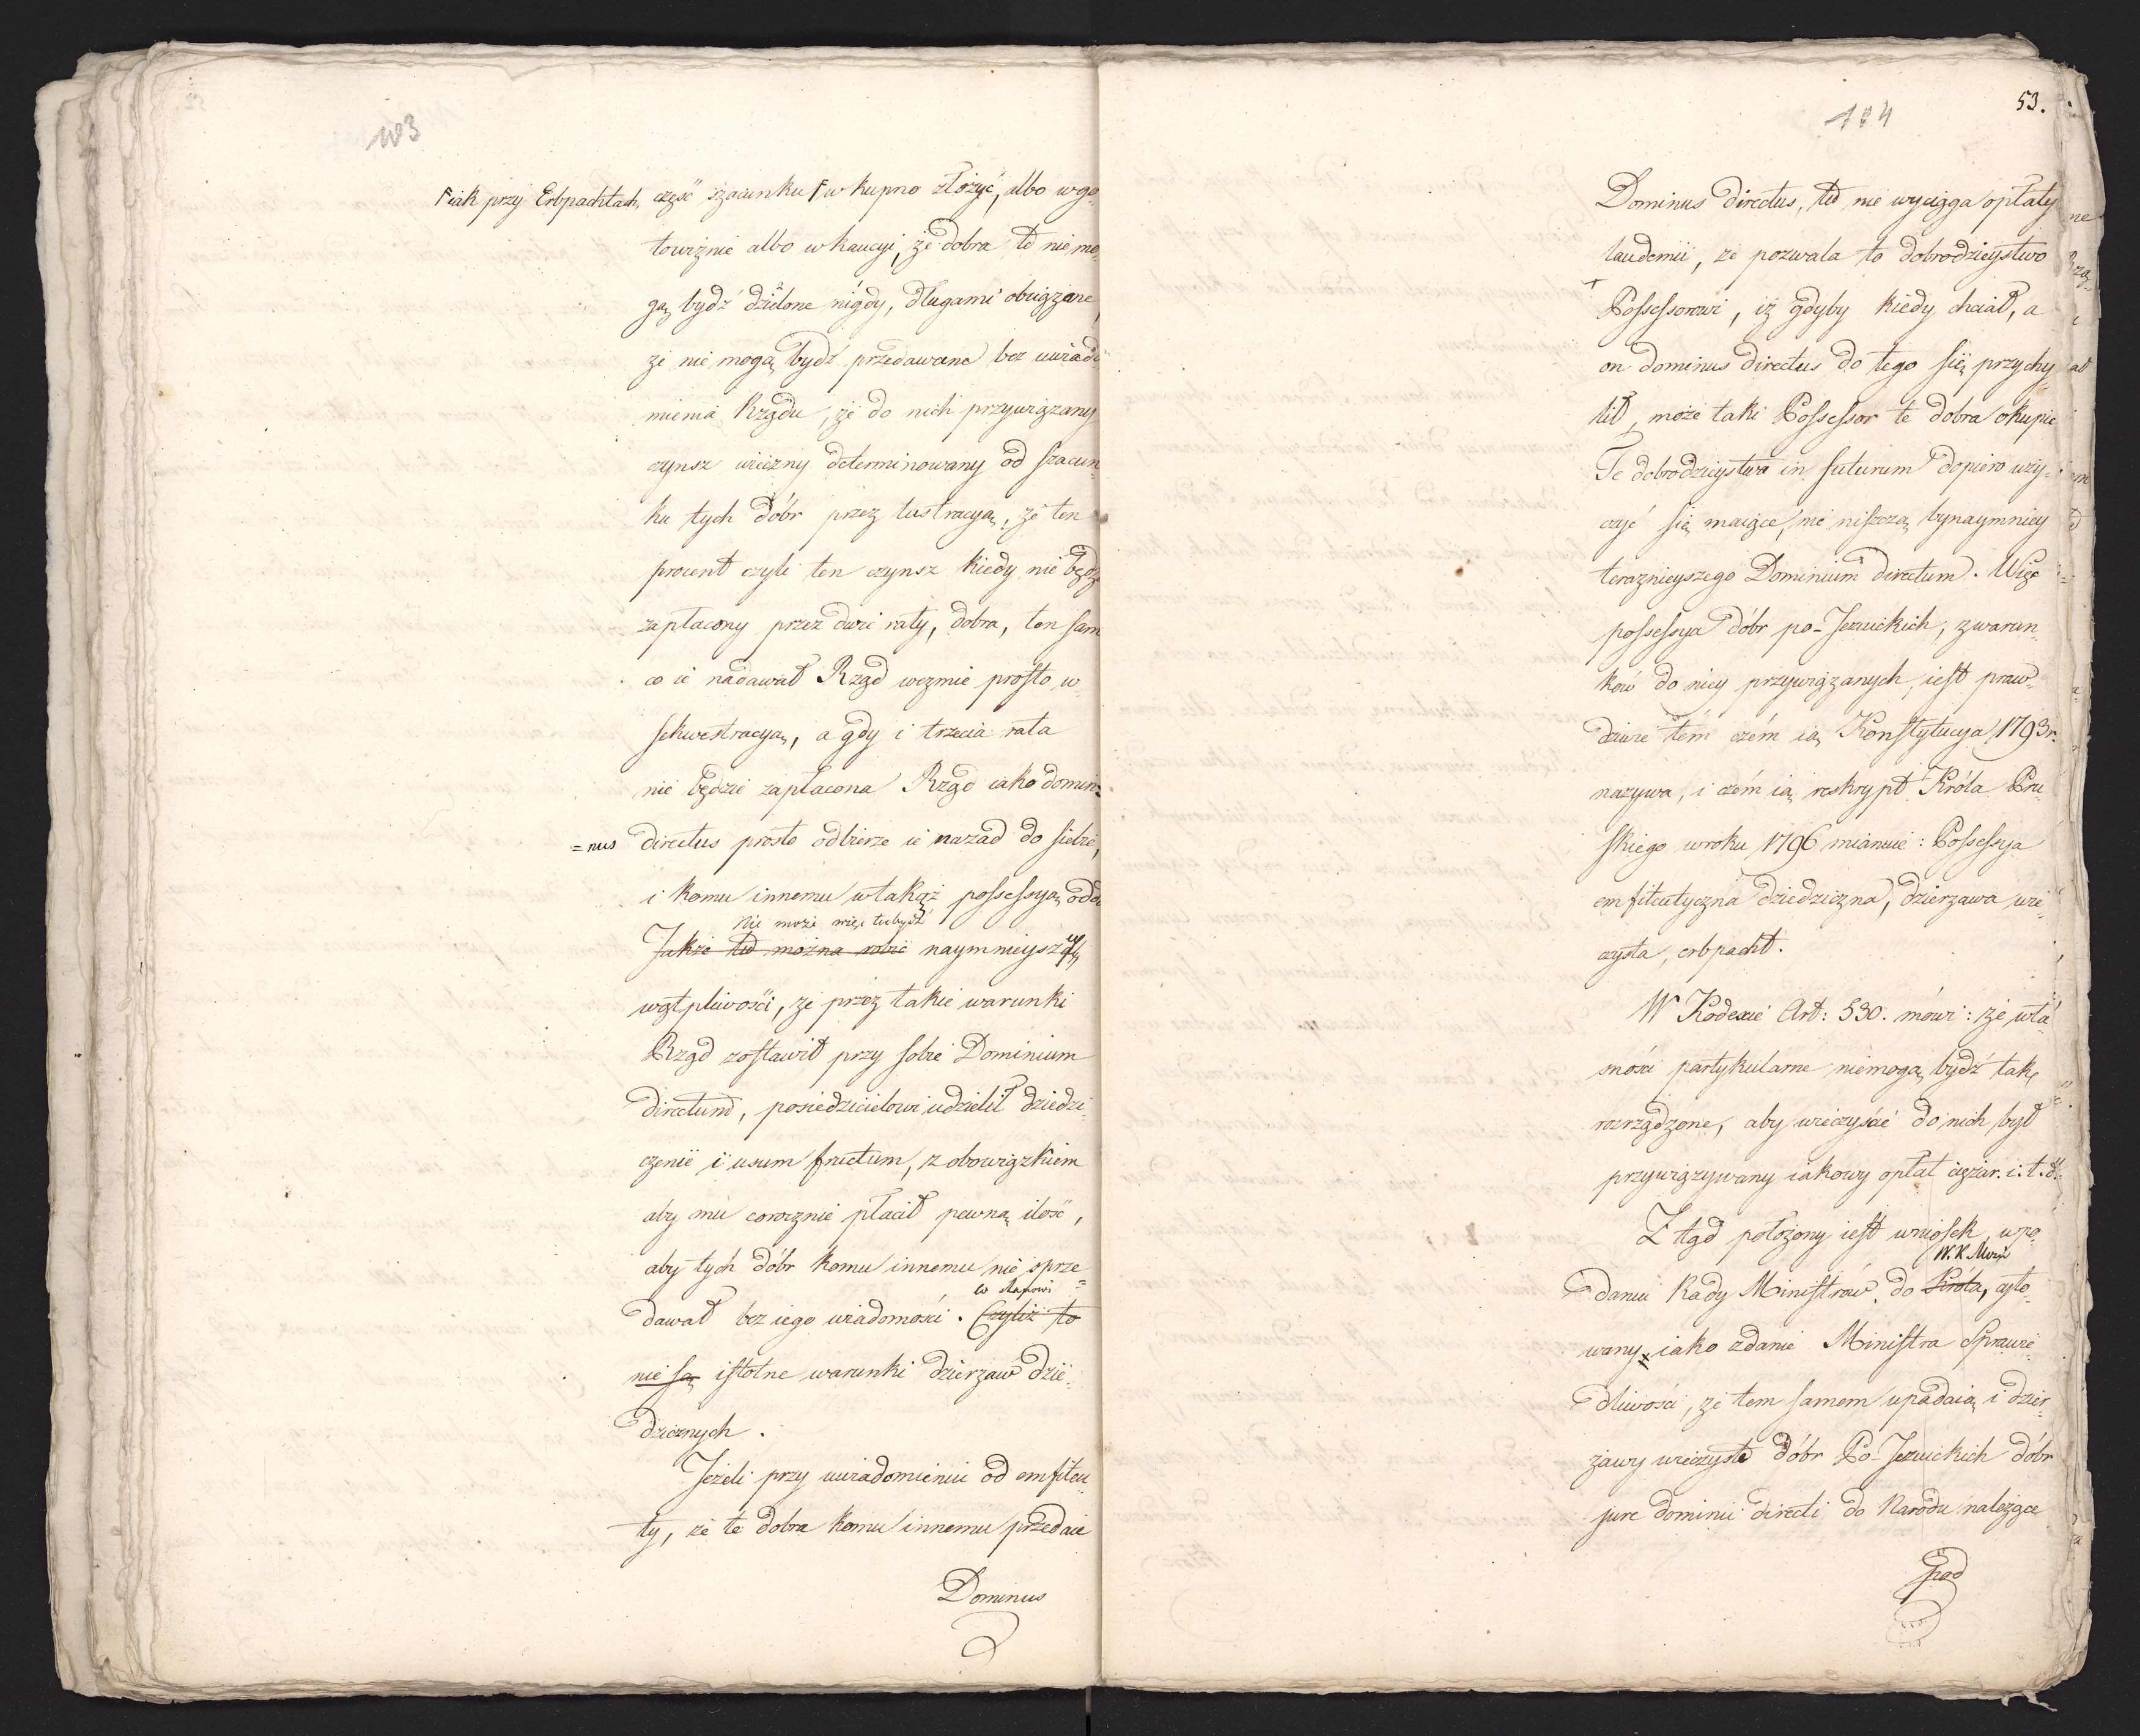 103
ꟻiak przy Erbpachtach, część szacunku ꟻ w kupno złożyć, albo w go„
towiznie albo w kaucyi, że dobra te nie mo„
gą bydź dzielone nigdy, długami obciązane,
że nie mogą bydź przedawane bez uwiado„
mienia Rządu, że do nich przywiązany
czynsz wieczny determinowany od szacun„
ku tych dóbr przez lustracyą, że ten
procent czyli ten czynsz kiedy nie będz
zapłacony przez dwie raty, dobra, ten sam
co ie nadawał Rząd wezmie prosto w
sekwestracyą, a gdy i trzecia rata
nie będzie zapłacona Rząd iako domin=
=nus directus prosto odbierze ie nazad do siebie,
i komu innemu w takąż possessyą odda
Nie może więc tu bydź
Jakże tu można robić naymnieyszey
wątpliwości, że przez takie warunki
Rząd zostawił przy sobie Dominium
directum, posiedzicielowi udzielił dziedzi„
czenie i usum fructum, z obowiązkiem
aby mu corocznie płacił pewną ilość,
aby tych dóbr komu innemu nie sprze=
co stanowi
dawał bez iego wiadomości. Czyliż to
nie są istotne warunki dzierzaw dzie„
dzicznych.
Jeżeli przy uwiadomieniu od emfiteu„
ty, że te dobra komu innemu przedaie
Dominus
104
53.
Dominus directus, tu nie wyciąga opłaty
laudemii, że pozwala to dobrodzieystwo
Possessorowi, iż gdyby kiedy chciał, a
on dominus directus do tego się przychy„
lił, może taki Possessor te dobra okupić
Te dobrodzieystwa in futurum dopiero uży„
czyć się maiące, nie niszczą bynaymniey
teraznieyszego Dominium directum. Więc
possessya dóbr po-Jezuickich, z warun„
ków do niey przywiązanych, iest praw„
dziwie tém czém ią Konstytucya 1793r.
nazywa, i czém ią reskrypt Króla Pru
skiego w roku 1796 mianuie: Possessya
emfiteutyczna dziedziczna, dzierzawa wie„
czysta, erbpacht.
W Kodexie Art: 530. mówi: że wła„
sności partykularne niemogą bydź tak
rozrządzone, aby wieczyście do nich był
przywiązywany iakowy opłat ciężar. i. t. d.
Z tąd położony iest wniosek w po„
W. K. Mości
daniu Rady Ministrów do Króla, cyto„
wany iako zdanie Ministra Sprawie„
dliwości, że tem samem upadaią i dzier„
żawy wieczyste dóbr Po-Jezuickich dóbr
jure dominii directi do Narodu należące
Pod